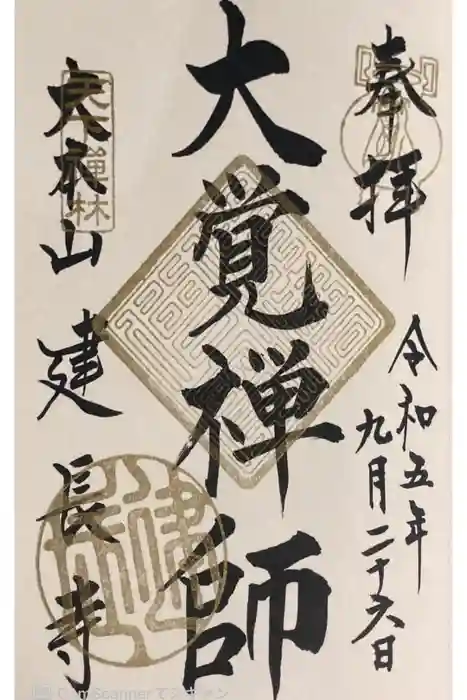 奉拝
令和五年
九月二十六日
大覚禅師
大本山 建長寺
CamScannerでスキャン